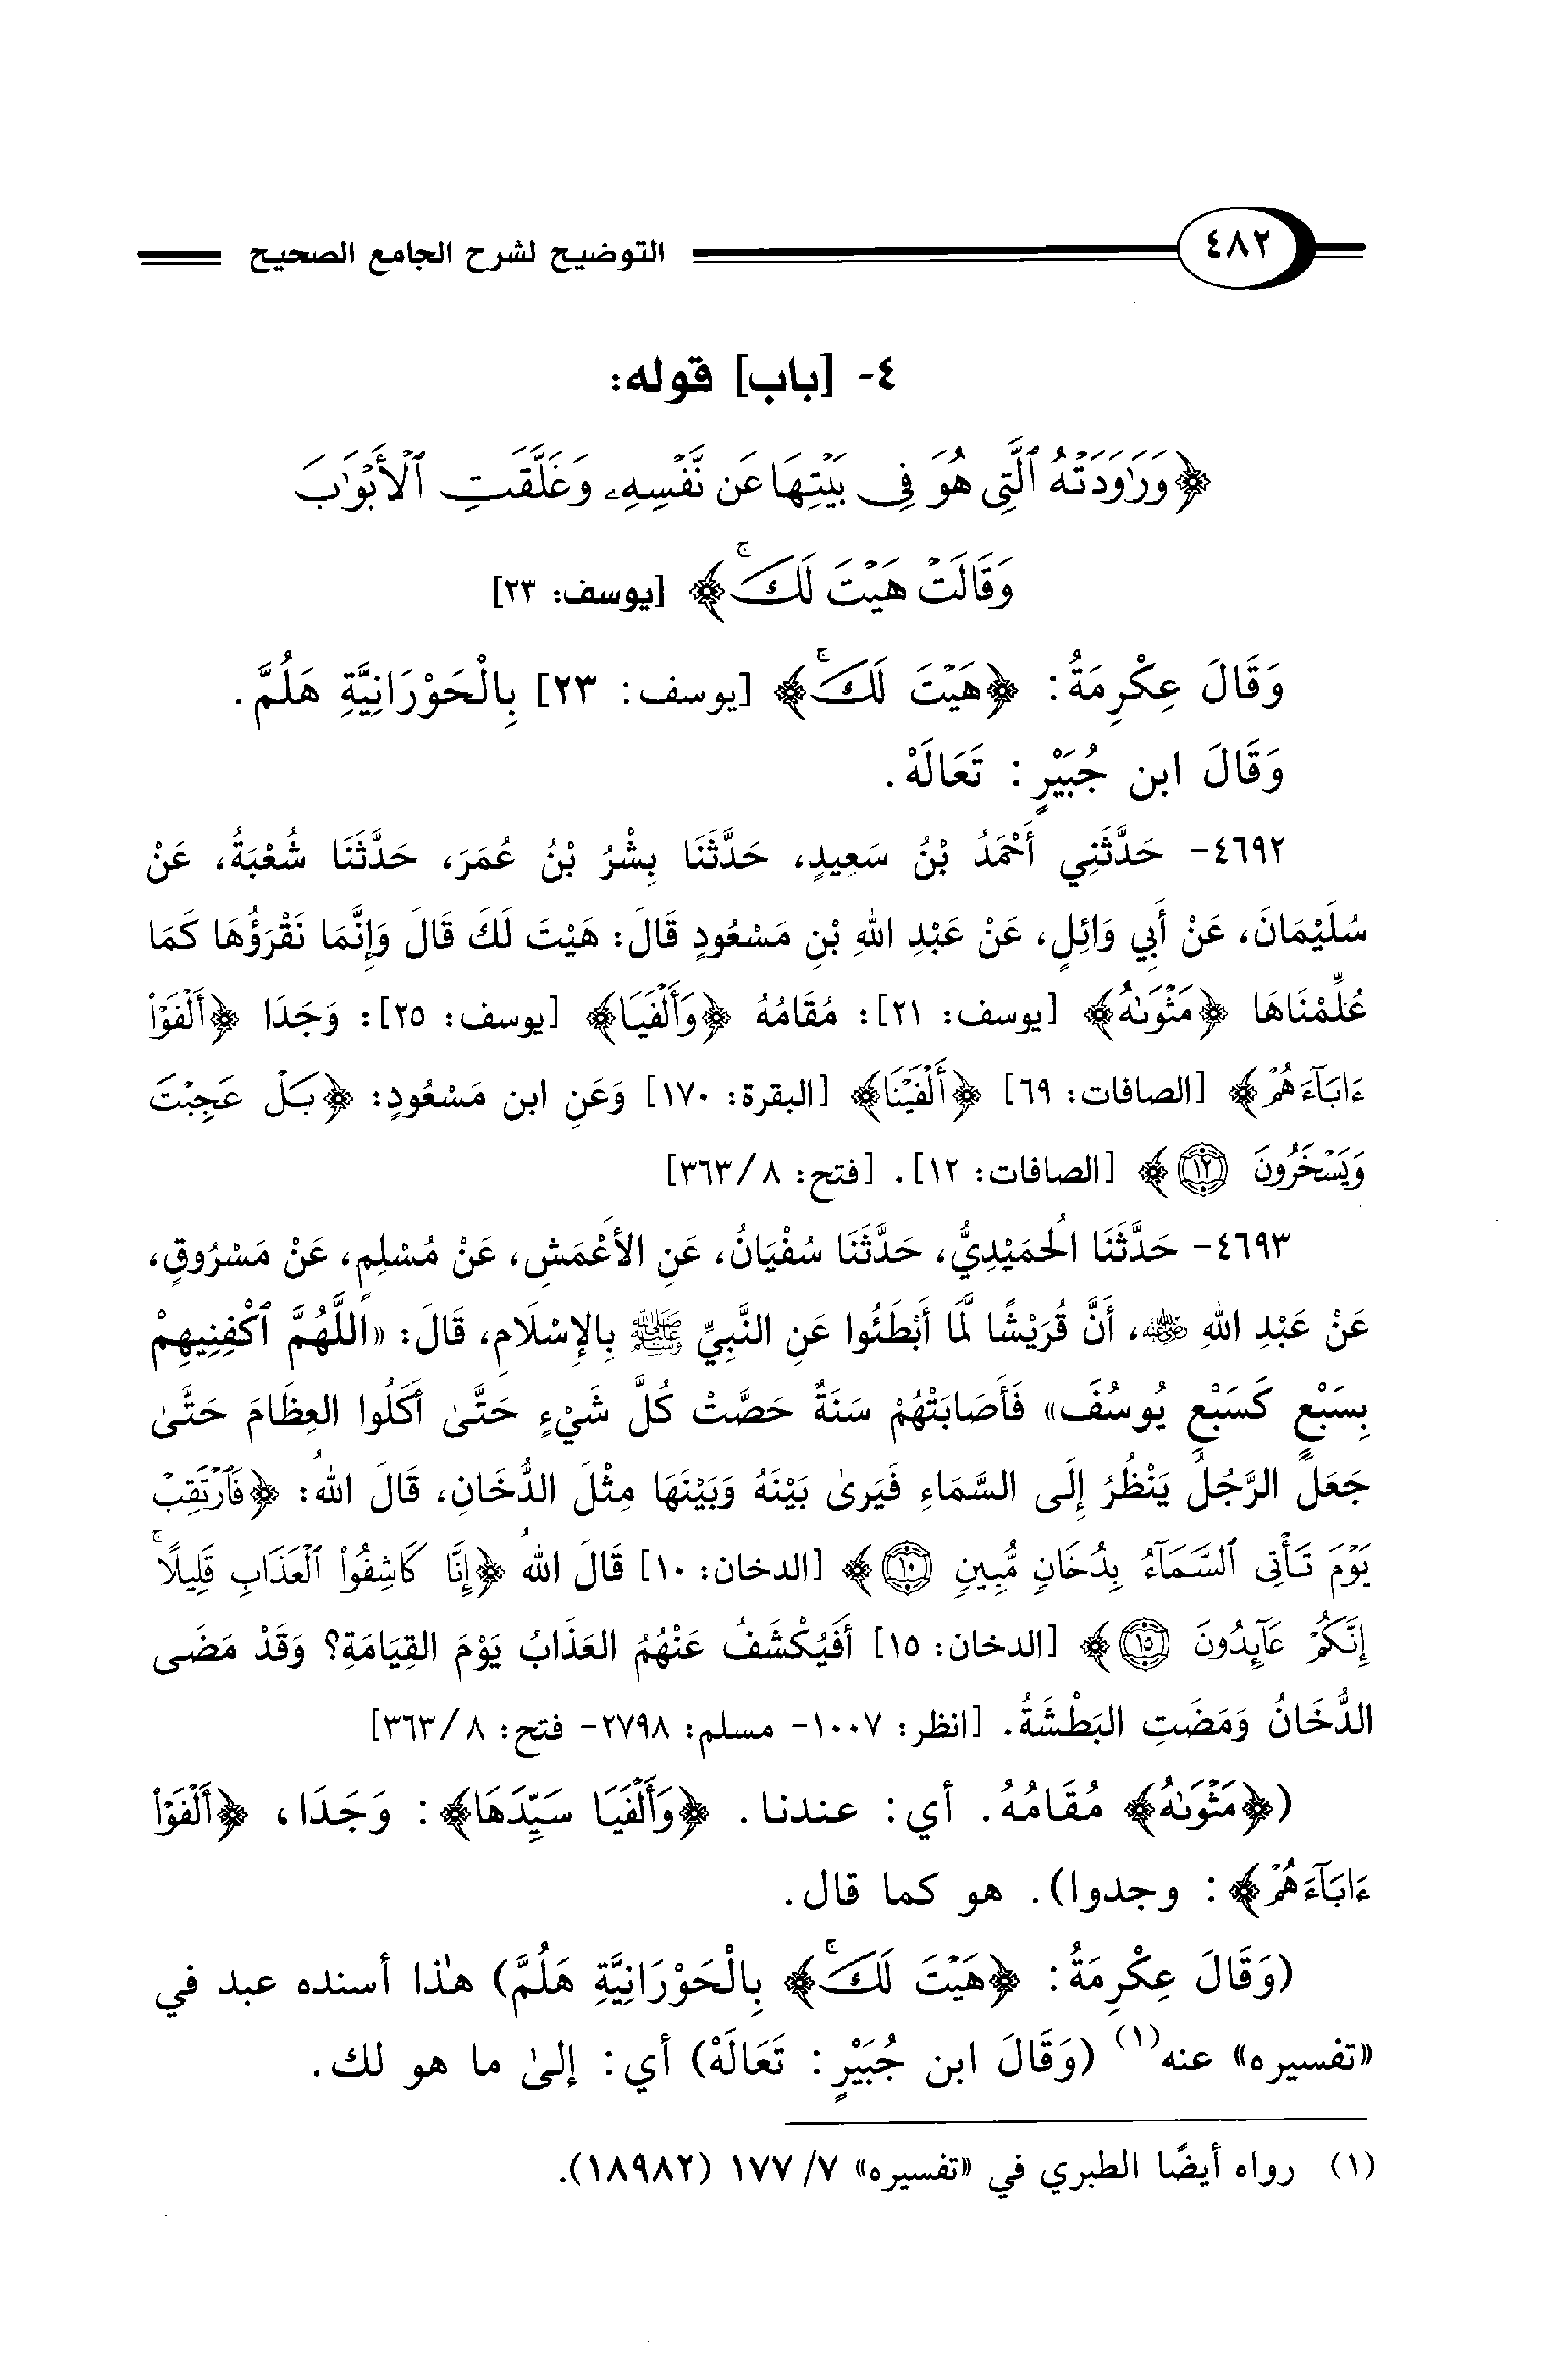 ٤٨٢ التوضيح لشرح الجامع الصحيح
٤- [باب] قوله:
﴿وَرَٰوَدَتْهُ ٱلَّتِى هُوَ فِى بَيْتِهَا عَن نَّفْسِهِۦ وَغَلَّقَتِ ٱلْأَبْوَٰبَ
وَقَالَتْ هَيْتَ لَكَ ۚ﴾ [يوسف: ٢٣]
وَقَالَ عِكْرِمَةُ: ﴿هَيْتَ لَكَ ۚ﴾ [يوسف: ٢٣] بِالْحَوْرَانِيَّةِ هَلُمَّ.
وَقَالَ ابن جُبَيْرٍ: تَعَالَهْ.
٤٦٩٢- حَدَّثَنِي أَحْمَدُ بْنُ سَعِيدٍ، حَدَّثَنَا بِشْرُ بْنُ عُمَرَ، حَدَّثَنَا شُعْبَةُ، عَنْ
سُلَيْمَانَ، عَنْ أَبِي وَائِلٍ، عَنْ عَبْدِ اللهِ بْنِ مَسْعُودٍ قَالَ: هَيْتَ لَكَ قَالَ وَإِنَّمَا نَقْرَؤُهَا كَمَا
عُلِّمْنَاهَا ﴿مَثْوَىٰهُ﴾ [يوسف: ٢١]: مُقَامُهُ ﴿وَأَلْفَيَا﴾ [يوسف: ٢٥]: وَجَدَا ﴿أَلْفَوْا۟
ءَابَآءَهُمْ﴾ [الصافات: ٦٩] ﴿أَلْفَيْنَا﴾ [البقرة: ١٧٠] وَعَنِ ابن مَسْعُودٍ: ﴿بَلْ عَجِبْتَ
وَيَسْخَرُونَ ١٢﴾ [الصافات: ١٢]. [فتح: ٨/ ٣٦٣]
٤٦٩٣- حَدَّثَنَا الُحمَيْدِيُّ، حَدَّثَنَا سُفْيَانُ، عَنِ الأَعْمَشِ، عَنْ مُسْلِمٍ، عَنْ مَسْرُوقٍ،
عَنْ عَبْدِ اللهِ ﵁، أَنَّ قُرَيْشًا لَمَّا أَبْطَئُوا عَنِ النَّبِيِّ ﷺ بِالإِسْلَامِ، قَالَ: «اللَّهُمَّ ٱكْفِنِيهِمْ
بِسَبْعٍ كَسَبْعِ يُوسُفَ» فَأَصَابَتْهُمْ سَنَةٌ حَصَّتْ كُلَّ شَيْءٍ حَتَّىٰ أَكَلُوا العِظَامَ حَتَّىٰ
جَعَلَ الرَّجُلُ يَنْظُرُ إِلَى السَّمَاءِ فَيَرىٰ بَيْنَهُ وَبَيْنَهَا مِثْلَ الدُّخَانِ، قَالَ اللهُ: ﴿فَٱرْتَقِبْ
يَوْمَ تَأْتِى ٱلسَّمَآءُ بِدُخَانٍ مُّبِينٍ ١٠﴾ [الدخان: ١٠] قَالَ اللهُ ﴿إِنَّا كَاشِفُوا۟ ٱلْعَذَابِ قَلِيلًا ۚ
إِنَّكُمْ عَآئِدُونَ ١٥﴾ [الدخان: ١٥] أَفَيُكْشَفُ عَنْهُمُ العَذَابُ يَوْمَ القِيَامَةِ؟ وَقَدْ مَضَى
الدُّخَانُ وَمَضَتِ البَطْشَةُ. [انظر: ١٠٠٧- مسلم: ٢٧٩٨- فتح: ٨/ ٣٦٣]
(﴿مَثْوَىٰهُ﴾ مُقَامُهُ. أي: عندنا. ﴿وَأَلْفَيَا سَيِّدَهَا﴾: وَجَدَا، ﴿أَلْفَوْا۟
ءَابَآءَهُمْ﴾: وجدوا). هو كما قال.
(وَقَالَ عِكْرِمَةُ: ﴿هَيْتَ لَكَ ۚ﴾ بِالْحَوْرَانِيَّةِ هَلُمَّ) هٰذا أسنده عبد في
«تفسيره» عنه(١) (وَقَالَ ابن جُبَيْرٍ: تَعَالَهْ) أي: إلىٰ ما هو لك.
(١) رواه أيضًا الطبري في «تفسيره» ٧/ ١٧٧ (١٨٩٨٢).